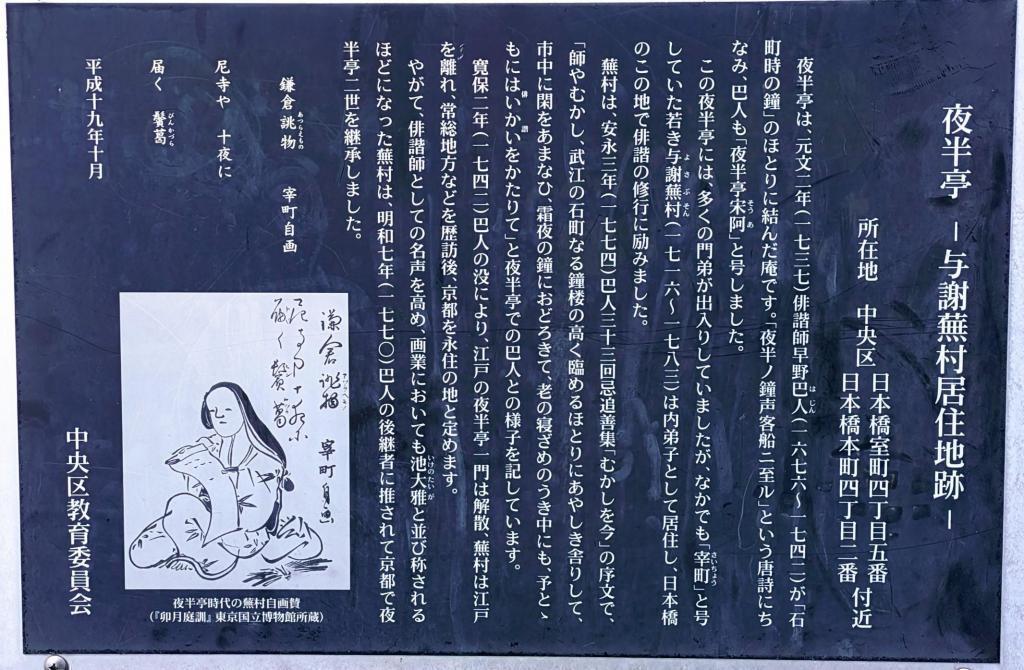 夜半亭 ―与謝蕪村居住地跡―
所在地 中央区 日本橋室町四丁目五番
日本橋本町四丁目二番 付近
夜半亭は、元文二年(一七三七)俳諧師早野巴人(一六七六~一七四二)が「石
町時の鐘」のほとりに結んだ庵です。「夜半ノ鐘声客船ニ至ル」という唐詩にち
なみ、巴人も「夜半亭宋阿」と号しました。
この夜半亭には、多くの門弟が出入りしていましたが、なかでも「宰町」と号
していた若き与謝蕪村(一七一六~一七八三)は内弟子として居住し、日本橋
のこの地で俳諧の修行に励みました。
蕪村は、安永三年(一七七四)巴人三十三回忌追善集「むかしを今」の序文で、
「師やむかし、武江の石町なる鐘楼の高く臨めるほとりにあやしき舎りして、
市中に閑をあまなひ、霜夜の鐘におどろきて、老の寝ざめのうき中にも、予とゝ
もにはいかいをかたりて」と夜半亭での巴人との様子を記しています。
寛保二年(一七四二)巴人の没により、江戸の夜半亭一門は解散、蕪村は江戸
を離れ、常総地方などを歴訪後、京都を永住の地と定めます。
やがて、俳諧師としての名声を高め、画業においても池大雅と並び称される
ほどになった蕪村は、明和七年(一七七〇)巴人の後継者に推されて京都で夜
半亭二世を継承しました。
鎌倉誂物 宰町自画
尼寺や 十夜に
届く 鬢葛
平成十九年十月
中央区教育委員会
謙倉誂物 宰町自画
尼寺や十夜に
届く鬢葛
夜半亭時代の蕪村自画賛
(『卯月庭訓』東京国立博物館所蔵)